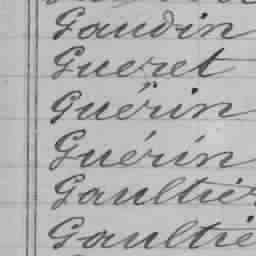 Gaudin
Gueret
Guérin
Guérin
Gaultier
Gaultie